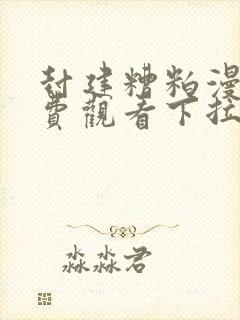 封建糟粕漫
費觀看下拉
淼淼君